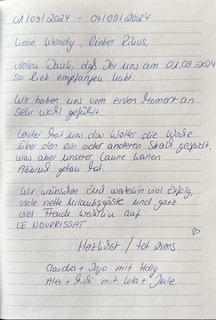 01/09/2024 - 07/09/2024
Liebe Wendy, lieber Rikus,
vielen Dank, daß Ihr uns am 01.09.2024
so lieb empfangen habt.
Wir haben uns vom ersten Moment an
sehr wohl gefühlt.
Leider hat uns das Wetter die Woche
über den ein oder anderen Streich gespielt,
was aber unserer Laune keinen
Abbruch getan hat.
Wir wünschen Euch weiterhin viel Erfolg,
viele nette Urlaubsgäste und ganz
viel Freude weiterhin auf
LE NOURRISSAT
Herzlichst / tot ziens
Claudia + Ingo mit Holly
+ mit Lola + Jule